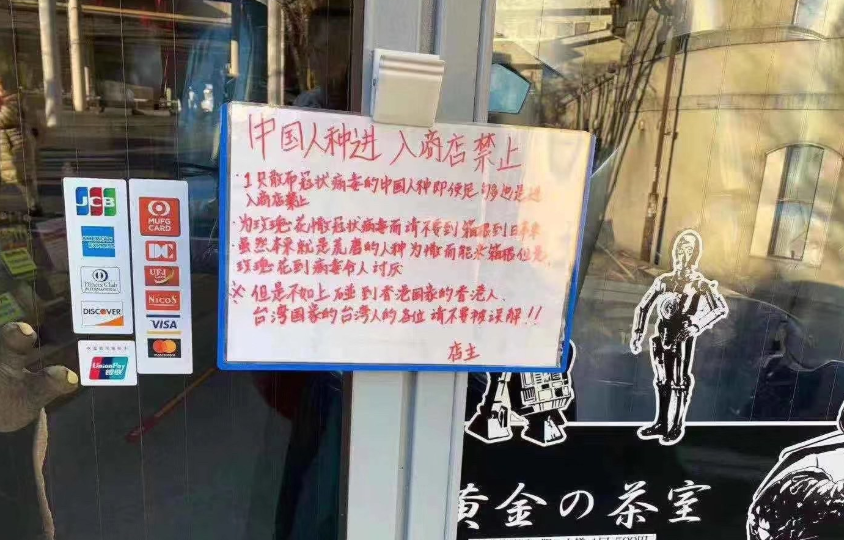 中国人种进 入商店禁止
・1只散布冠状病毒的中国人种即使足够也是进
入商店禁止
・为玫瑰花惭冠状病毒而请不要到箱根到日本来
・虽然本来就是荒磨的人种为惭而能来箱根但是
玫瑰花到病毒令人讨厌
※ 但是不如上碰到香港国家的香港人、
台湾国家的台湾人的各位请不要被误解!!
店主
JCB
AMERICAN EXPRESS
Diners Club
INTERNATIONAL
DISCOVER
UnionPay
银联
MUFG
CARD
DC
UFJ
Card
NICOS
VISA
mastercard
黄金の茶室